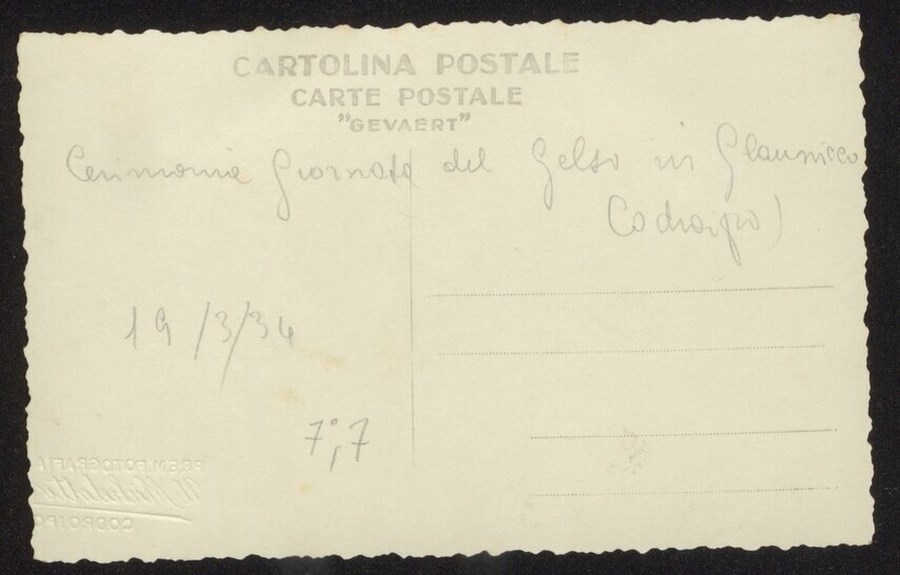 CARTOLINA POSTALE
CARTE POSTALE
"GEVAERT"
Cerimonia Giornata del Gelso in Glaunicco
Codroipo)
19/3/34
7°,7
PREM. FOTOGRAFIA
CODROIPO